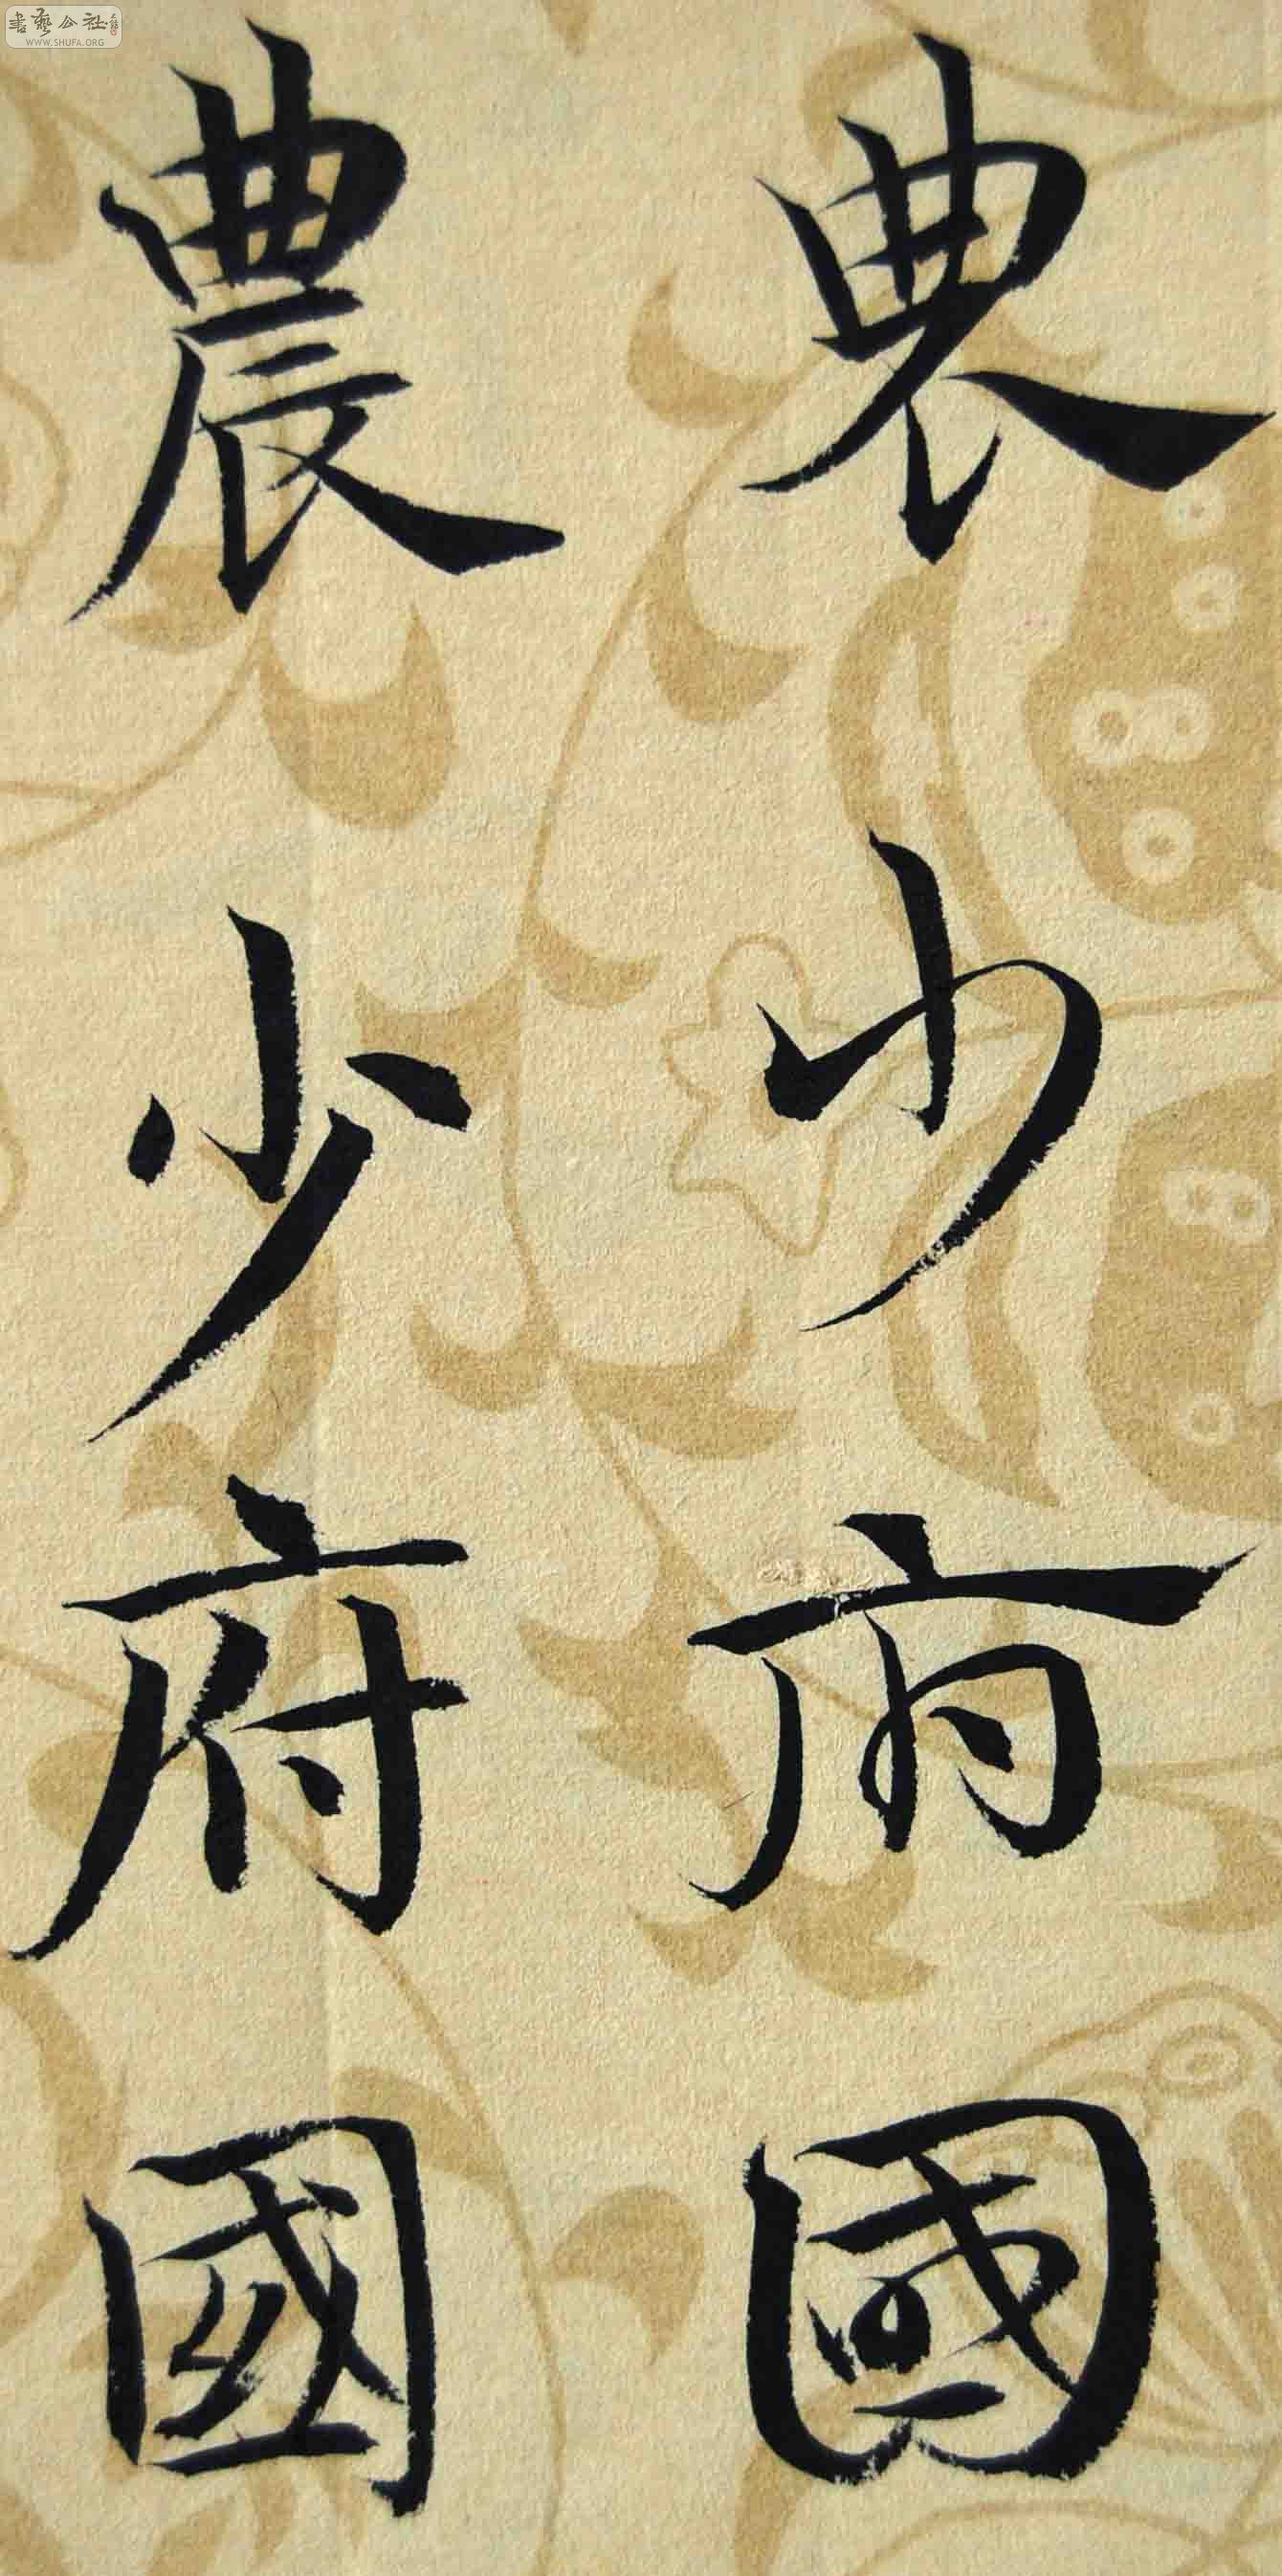 農少府國
農少府國
書藝公社
WWW.SHUFA.ORG